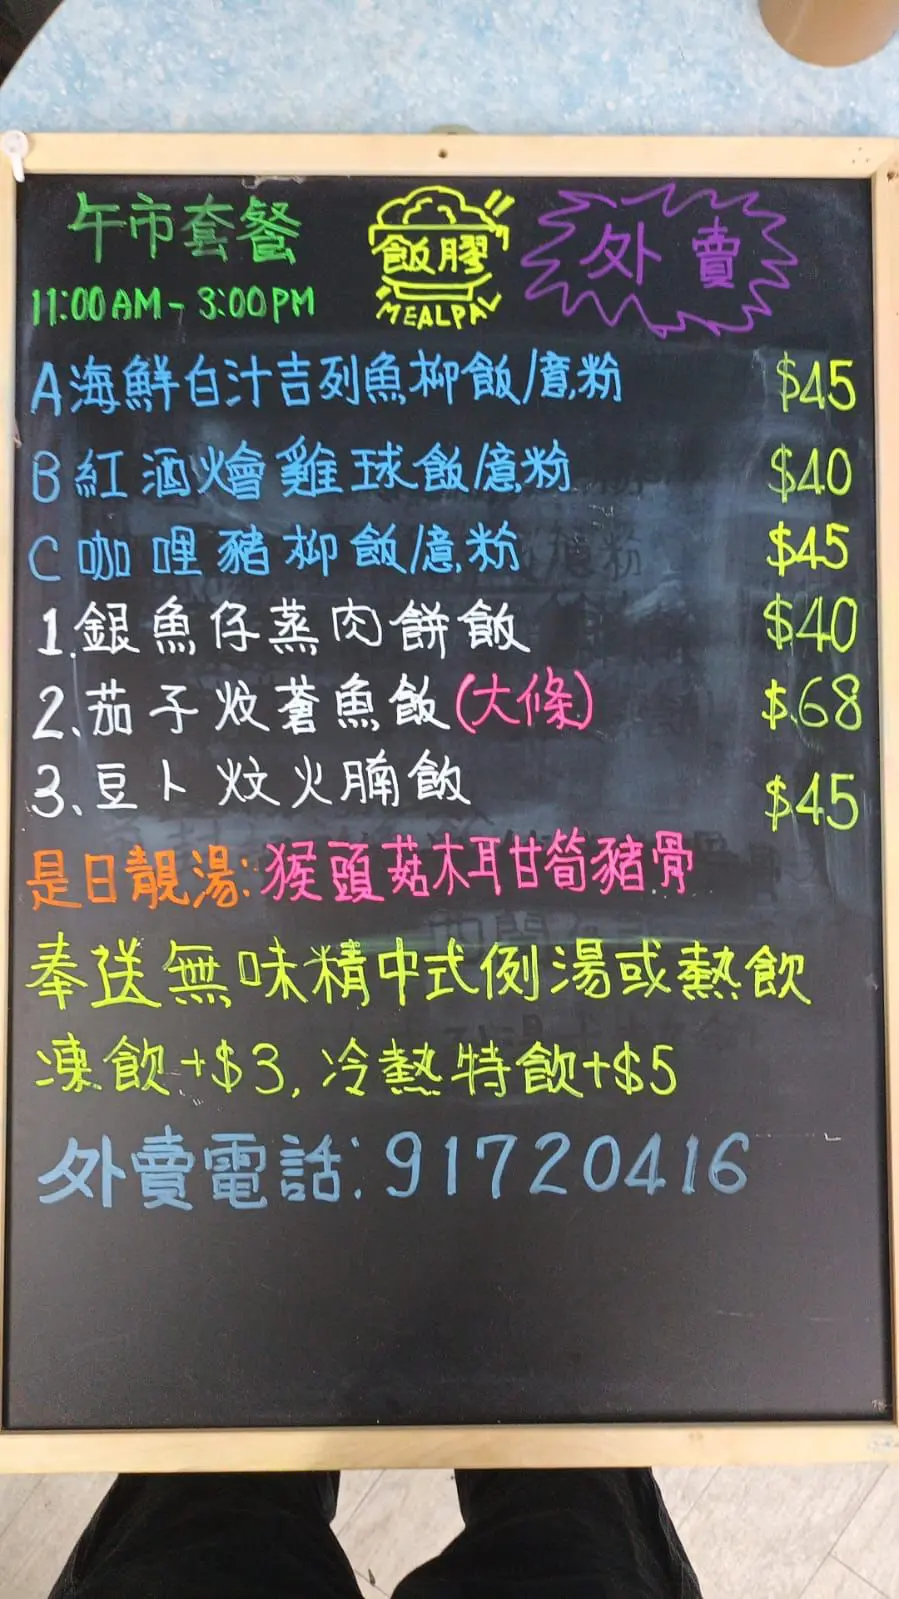 午市套餐
11:00AM - 3:00PM
飯膠
MEALPAL
外賣
A 海鮮白汁吉列魚柳飯/意粉 $45
B 紅酒燴雞球飯/意粉 $40
C 咖哩豬柳飯/意粉 $45
1. 銀魚仔蒸肉餅飯 $40
2. 茄子炆蒼魚飯(大條) $68
3. 豆卜炆火腩飯 $45
是日靚湯: 猴頭菇木耳甘筍豬骨
奉送無味精中式例湯或熱飲
凍飲+$3, 冷熱特飲+$5
外賣電話: 91720416